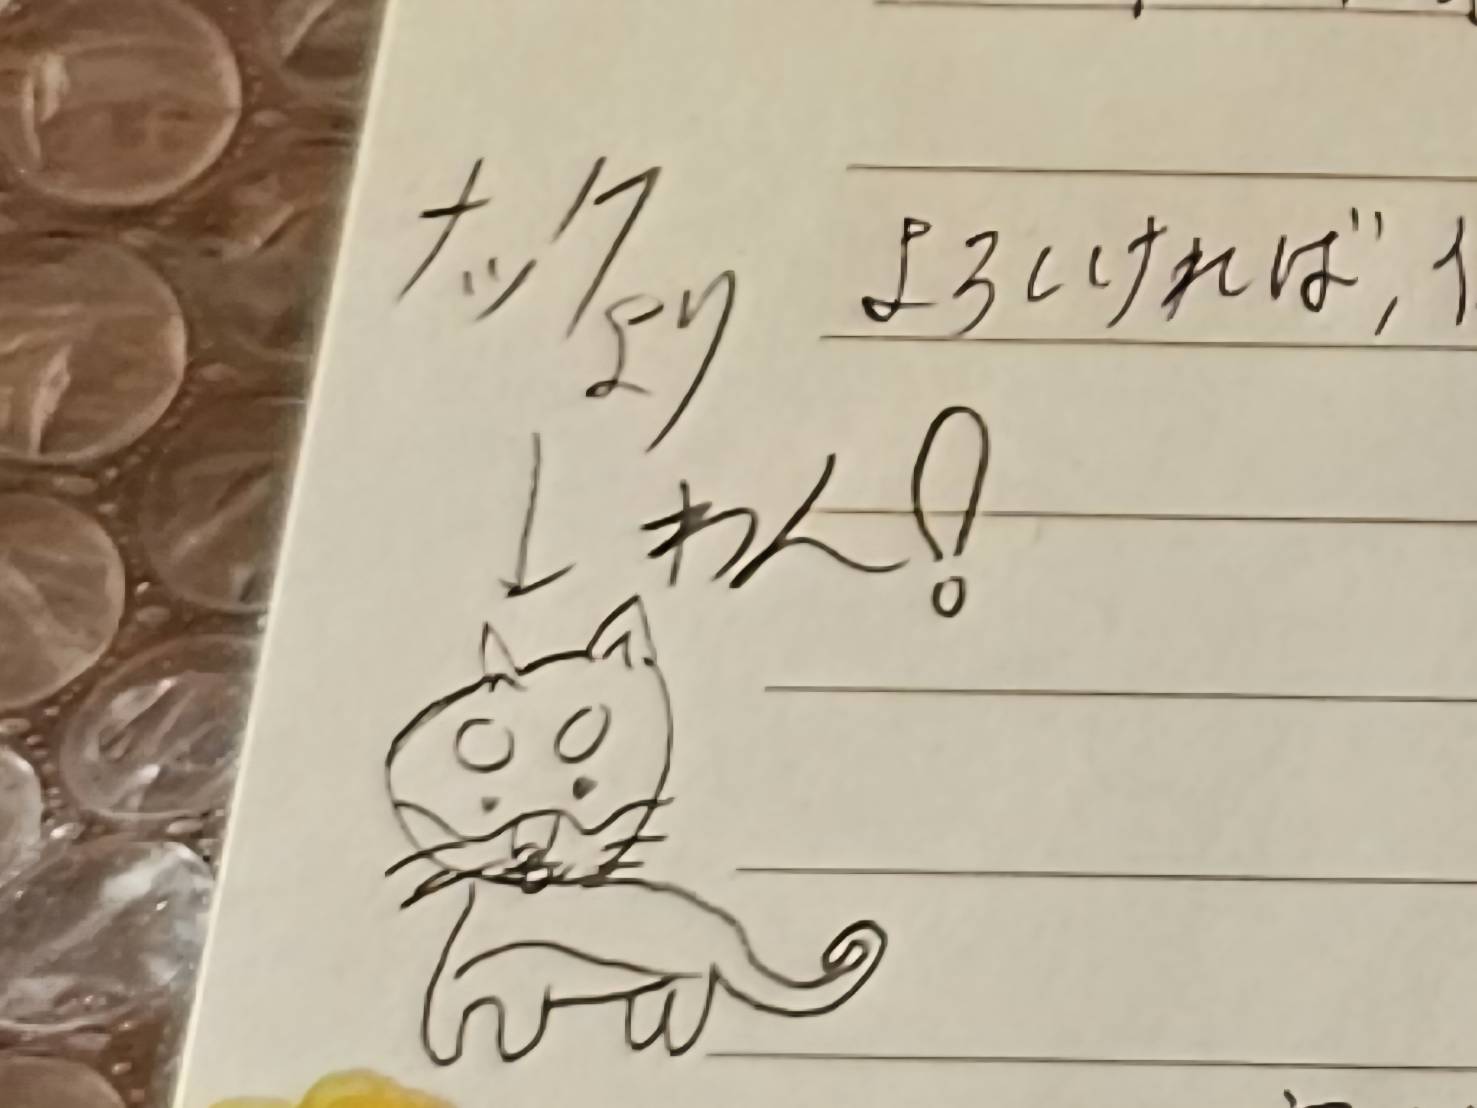 ナック
より
よろしければ、
わん!